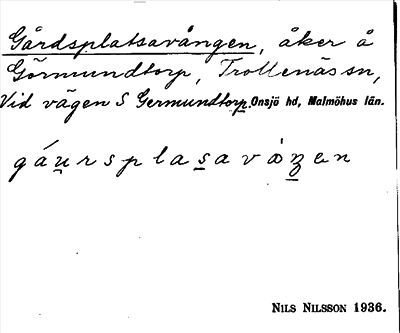 Gårdsplatsavången, åker å
Görmundtorp, Trollenäs sn,
Vid vägen S Germundtorp. Onsjö hd, Malmöhus län.
gáu̱rsplas̱avȧŋen
NILS NILSSON 1936.